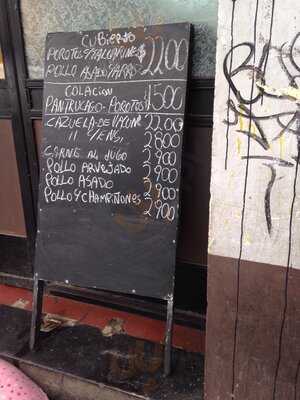 CUBIERTO
POROTOS Y TALLARINES $
POLLO ASADO Y ARROS 2200
COLACION
PANTRUCAS O POROTOS $1500
CAZUELA DE VACUNO 2200
11 C/ENS 2800
CARNE AL JUGO 2900
POLLO ARVEJADO 2900
POLLO ASADO 2900
POLLO Y CHAMPIÑONES 2900